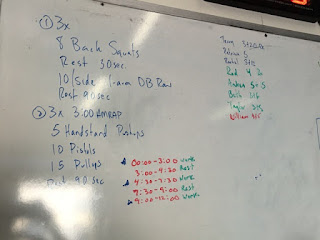 ① 3x
8 Back Squats
Rest 30sec
10/Side 1-arm DB Row
Rest 90sec
② 3x 3:00 AMRAP
5 Handstand Pushups
10 Pistols
15 Pullups
Rest 90 sec
00:00-3:00 Work
3:00-4:30 Rest
4:30-7:30 Work
7:30-9:00 Rest
9:00-12:00 Work
Rebecca 5
Rachel
Rod 4
Andrea 5+5
Beth
Taylor
William